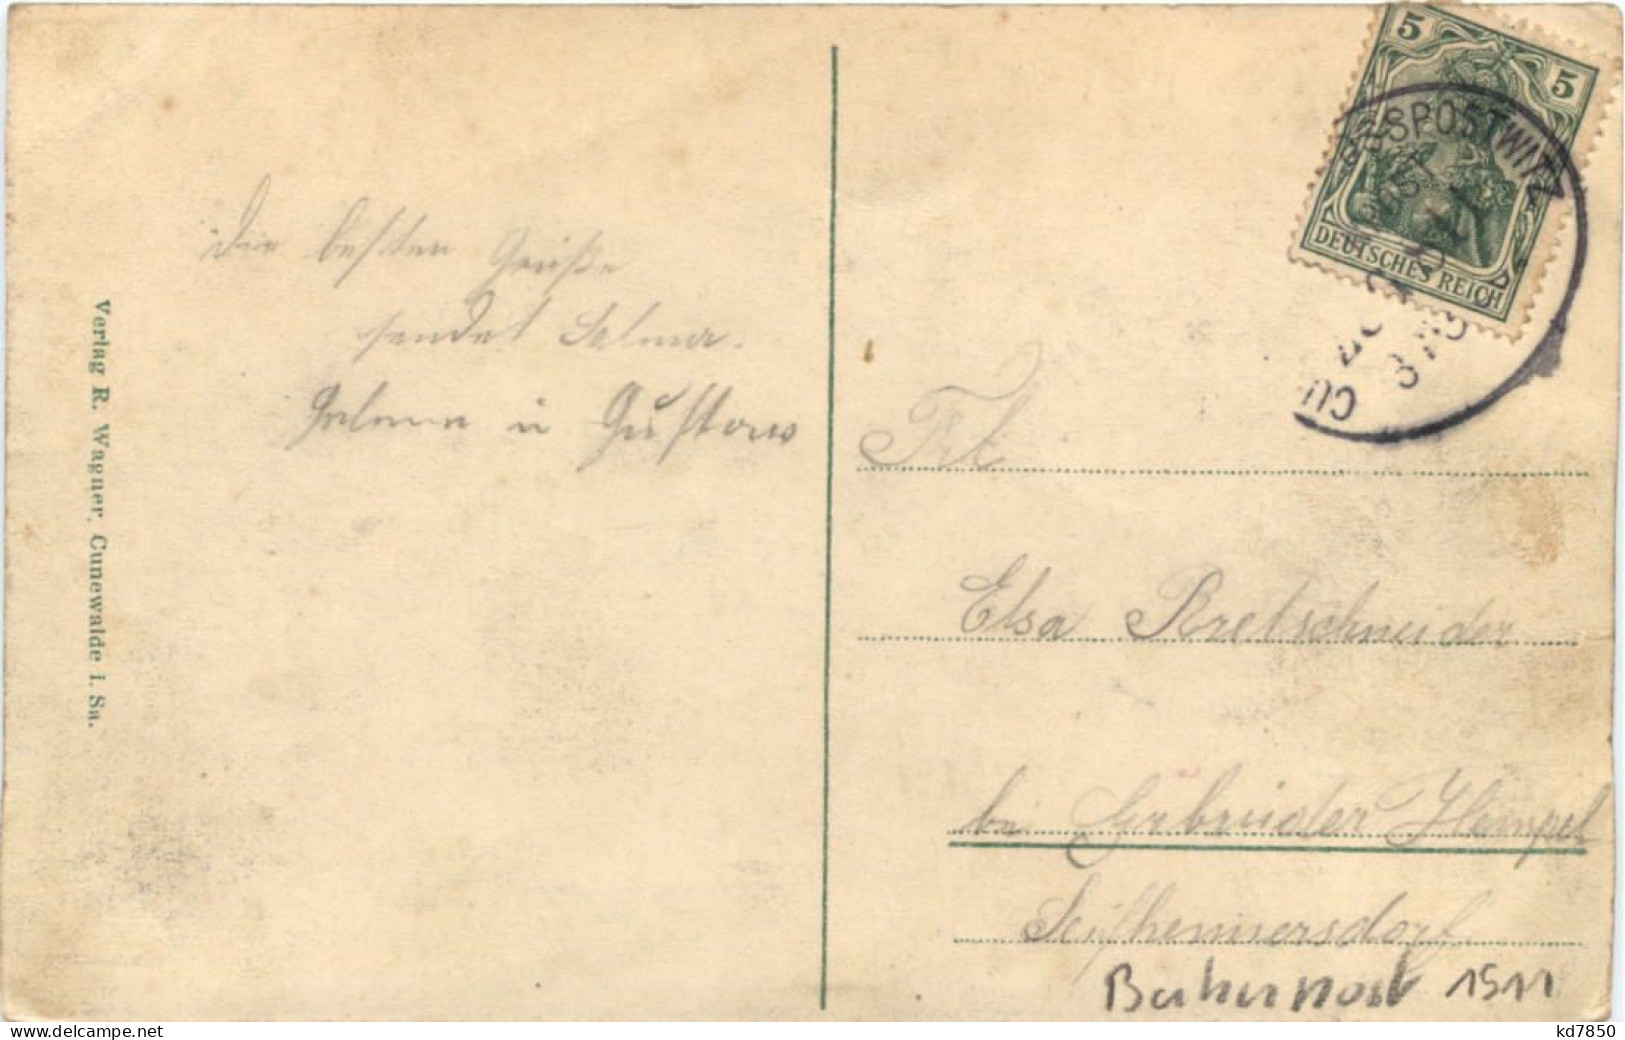 Die besten Grüße
sendet Selma.
Helene u Gustav
Verlag R. Wagner, Cunewalde i. Sa.
5 5
DEUTSCHES REICH
SPOSTWITZ
Frl
Elsa Bretschneider
bei Gebrüder Hempel
Seifhennersdorf
Bahnpost 1511
www.delcampe.net
kd7850